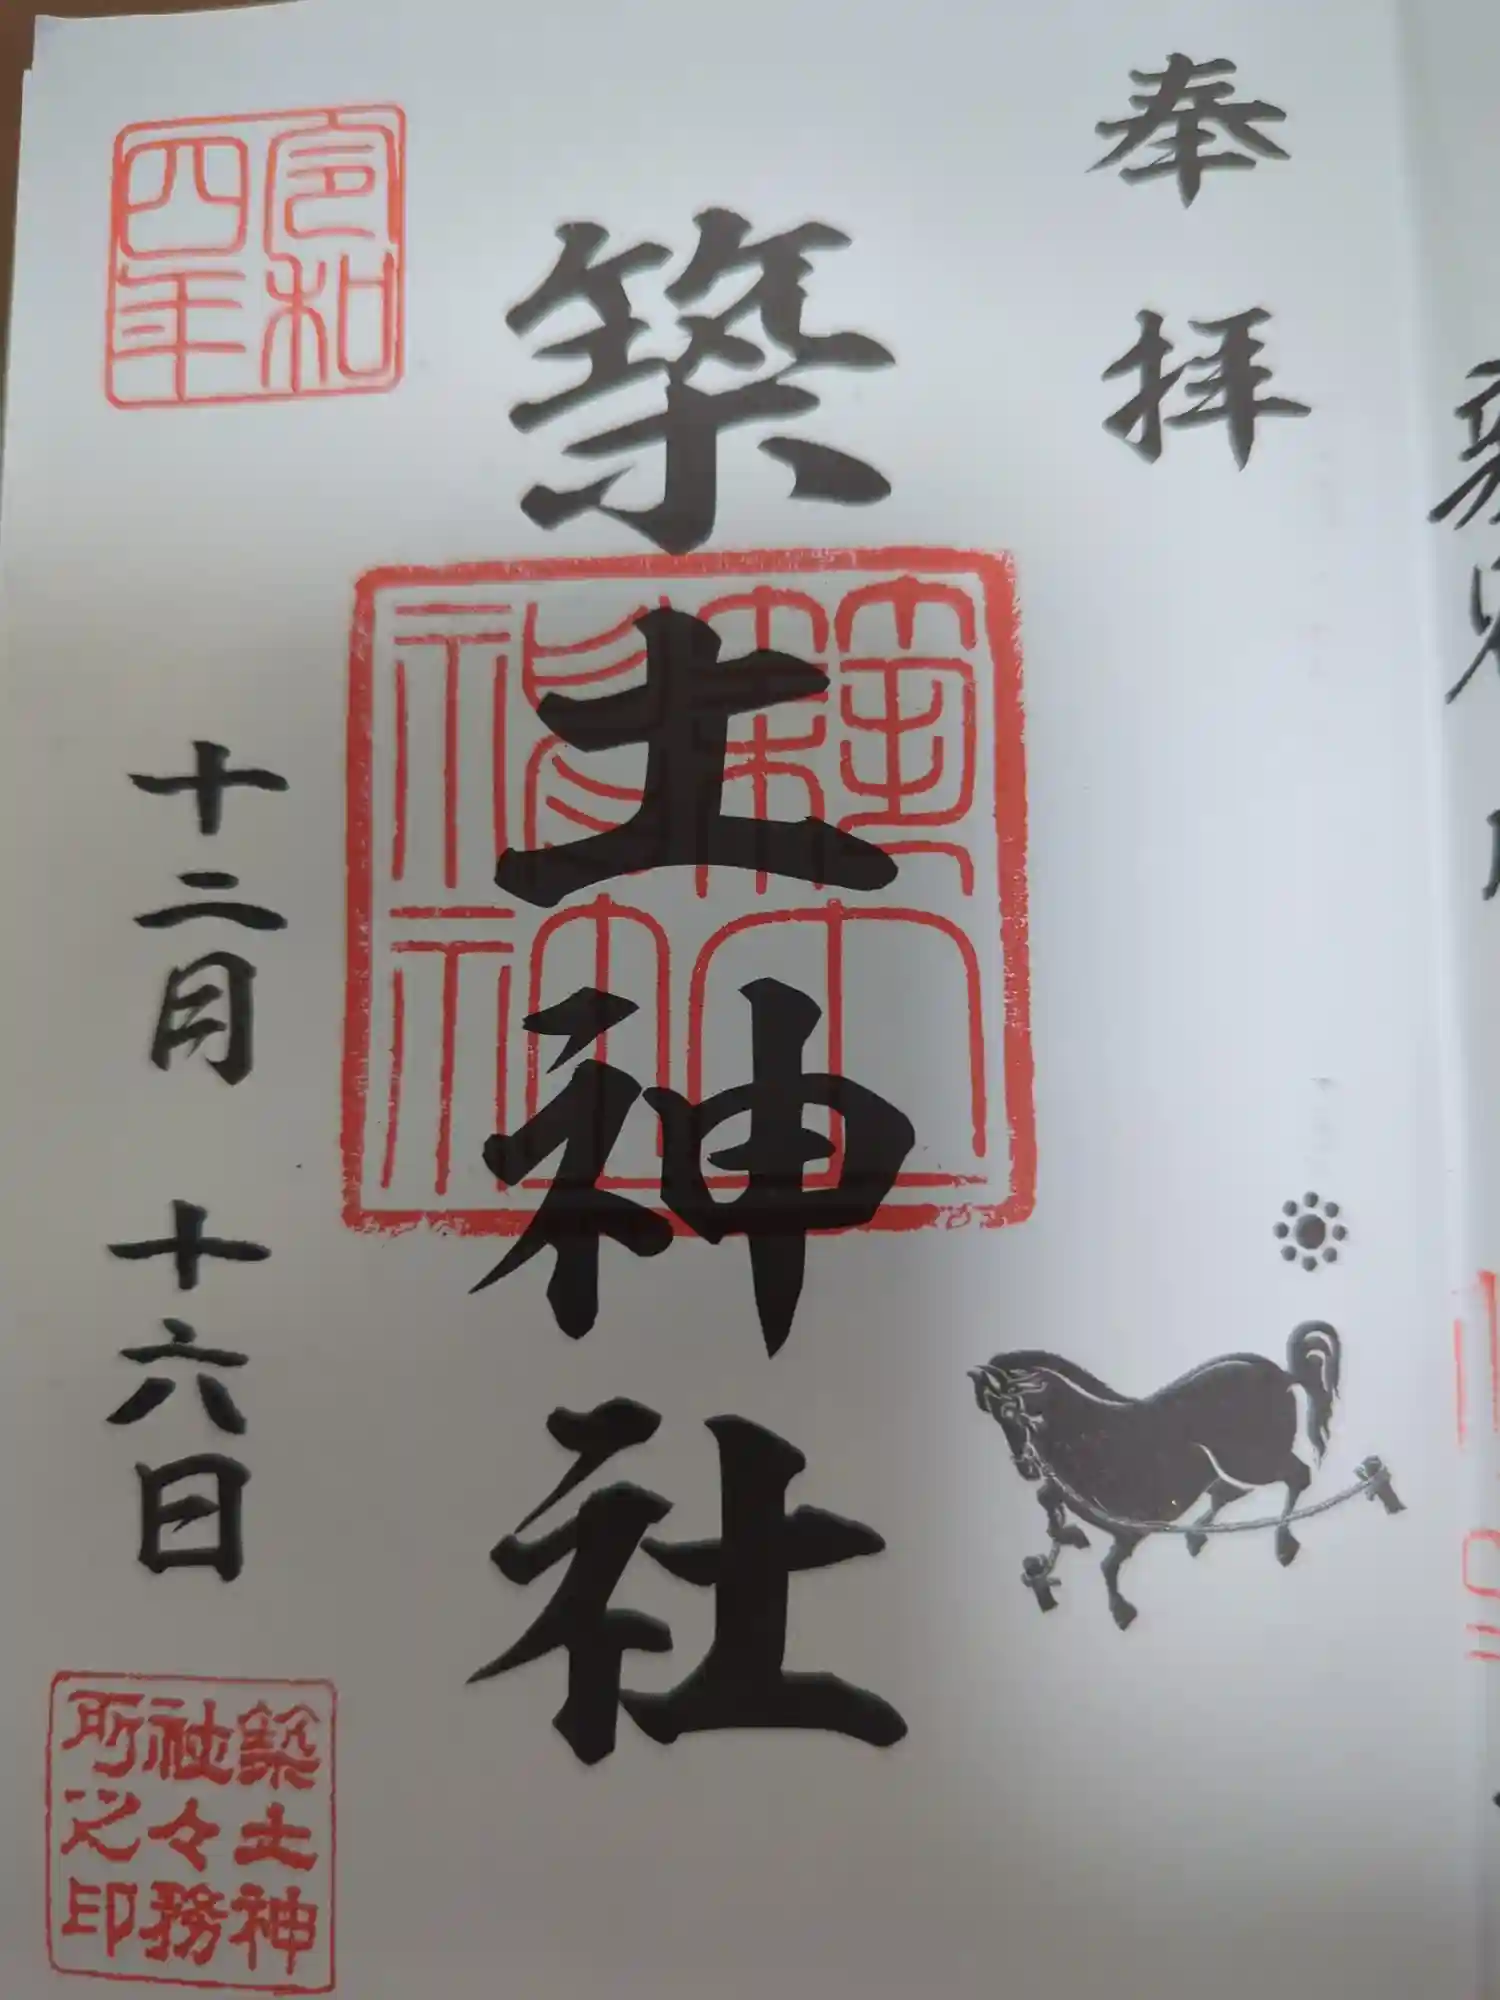 奉拝
築土神社
令和
四年
十二月 十六日
築土神
社々務
所之印